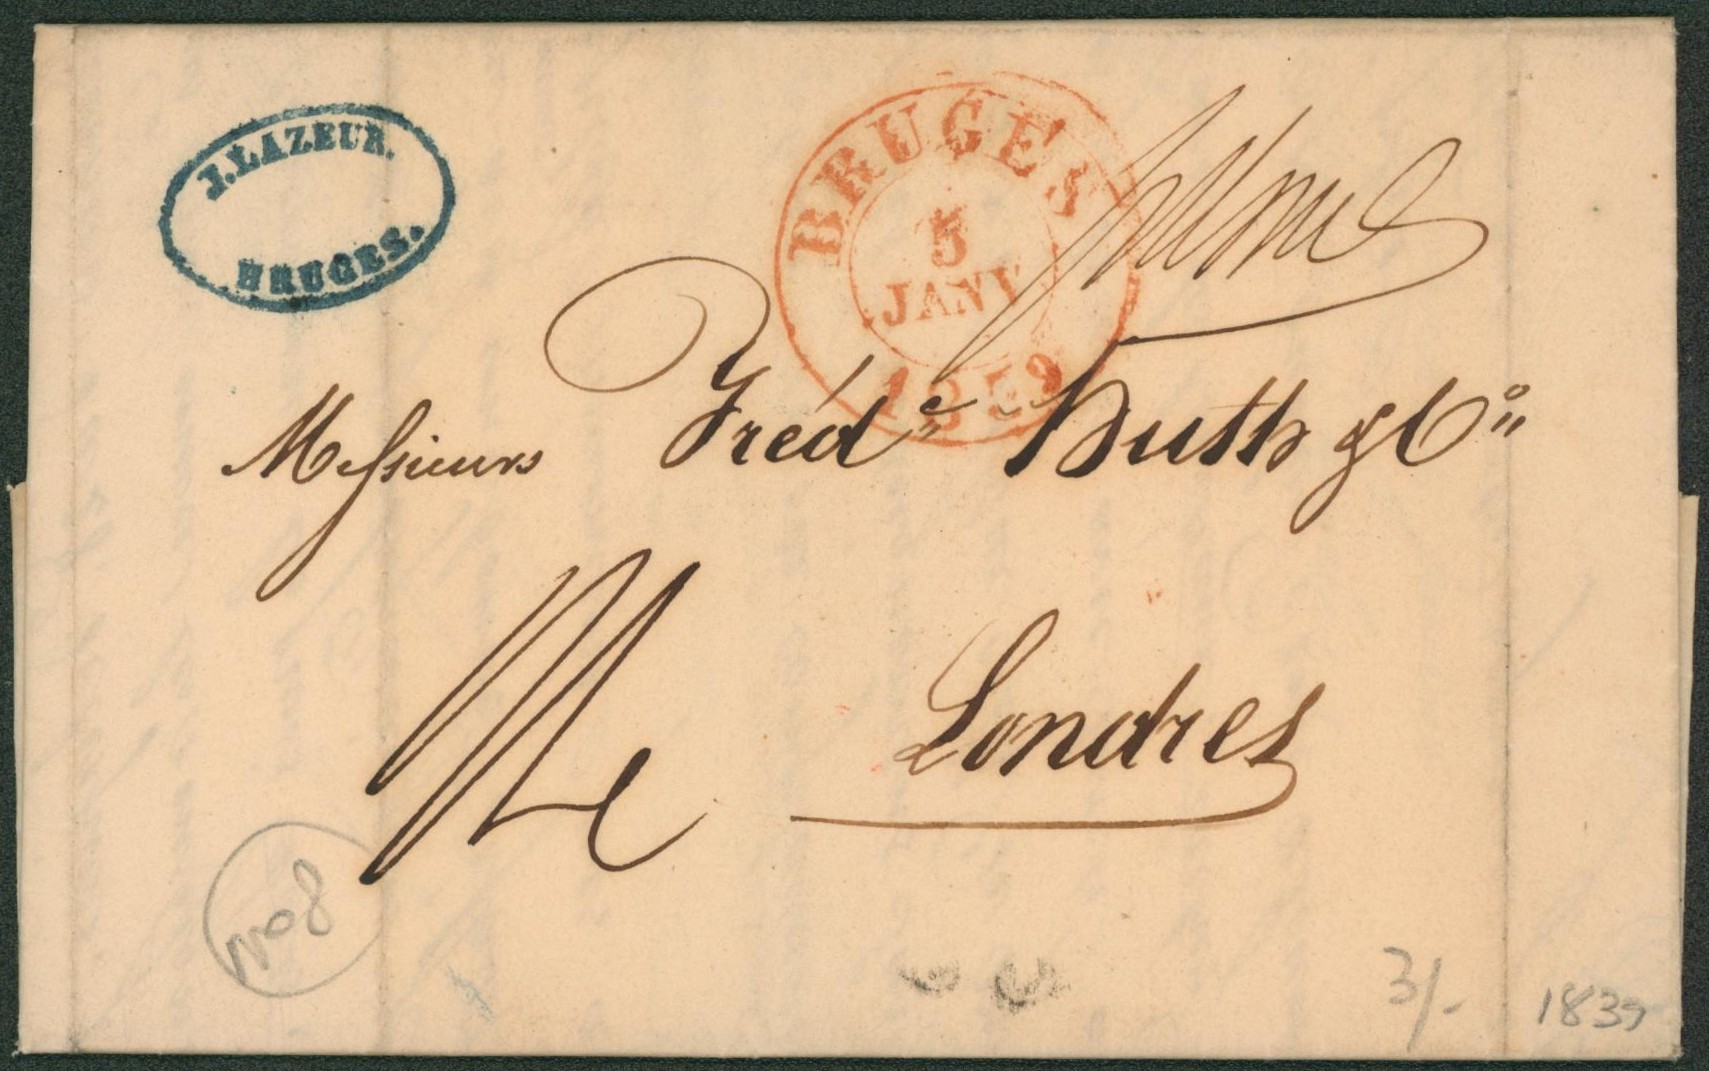 J. LAZEUR.
BRUGES.
BRUGES
5
JANV
1839
Messieurs Fréd. Huth & Co
Londres
No 8
3/-
1839